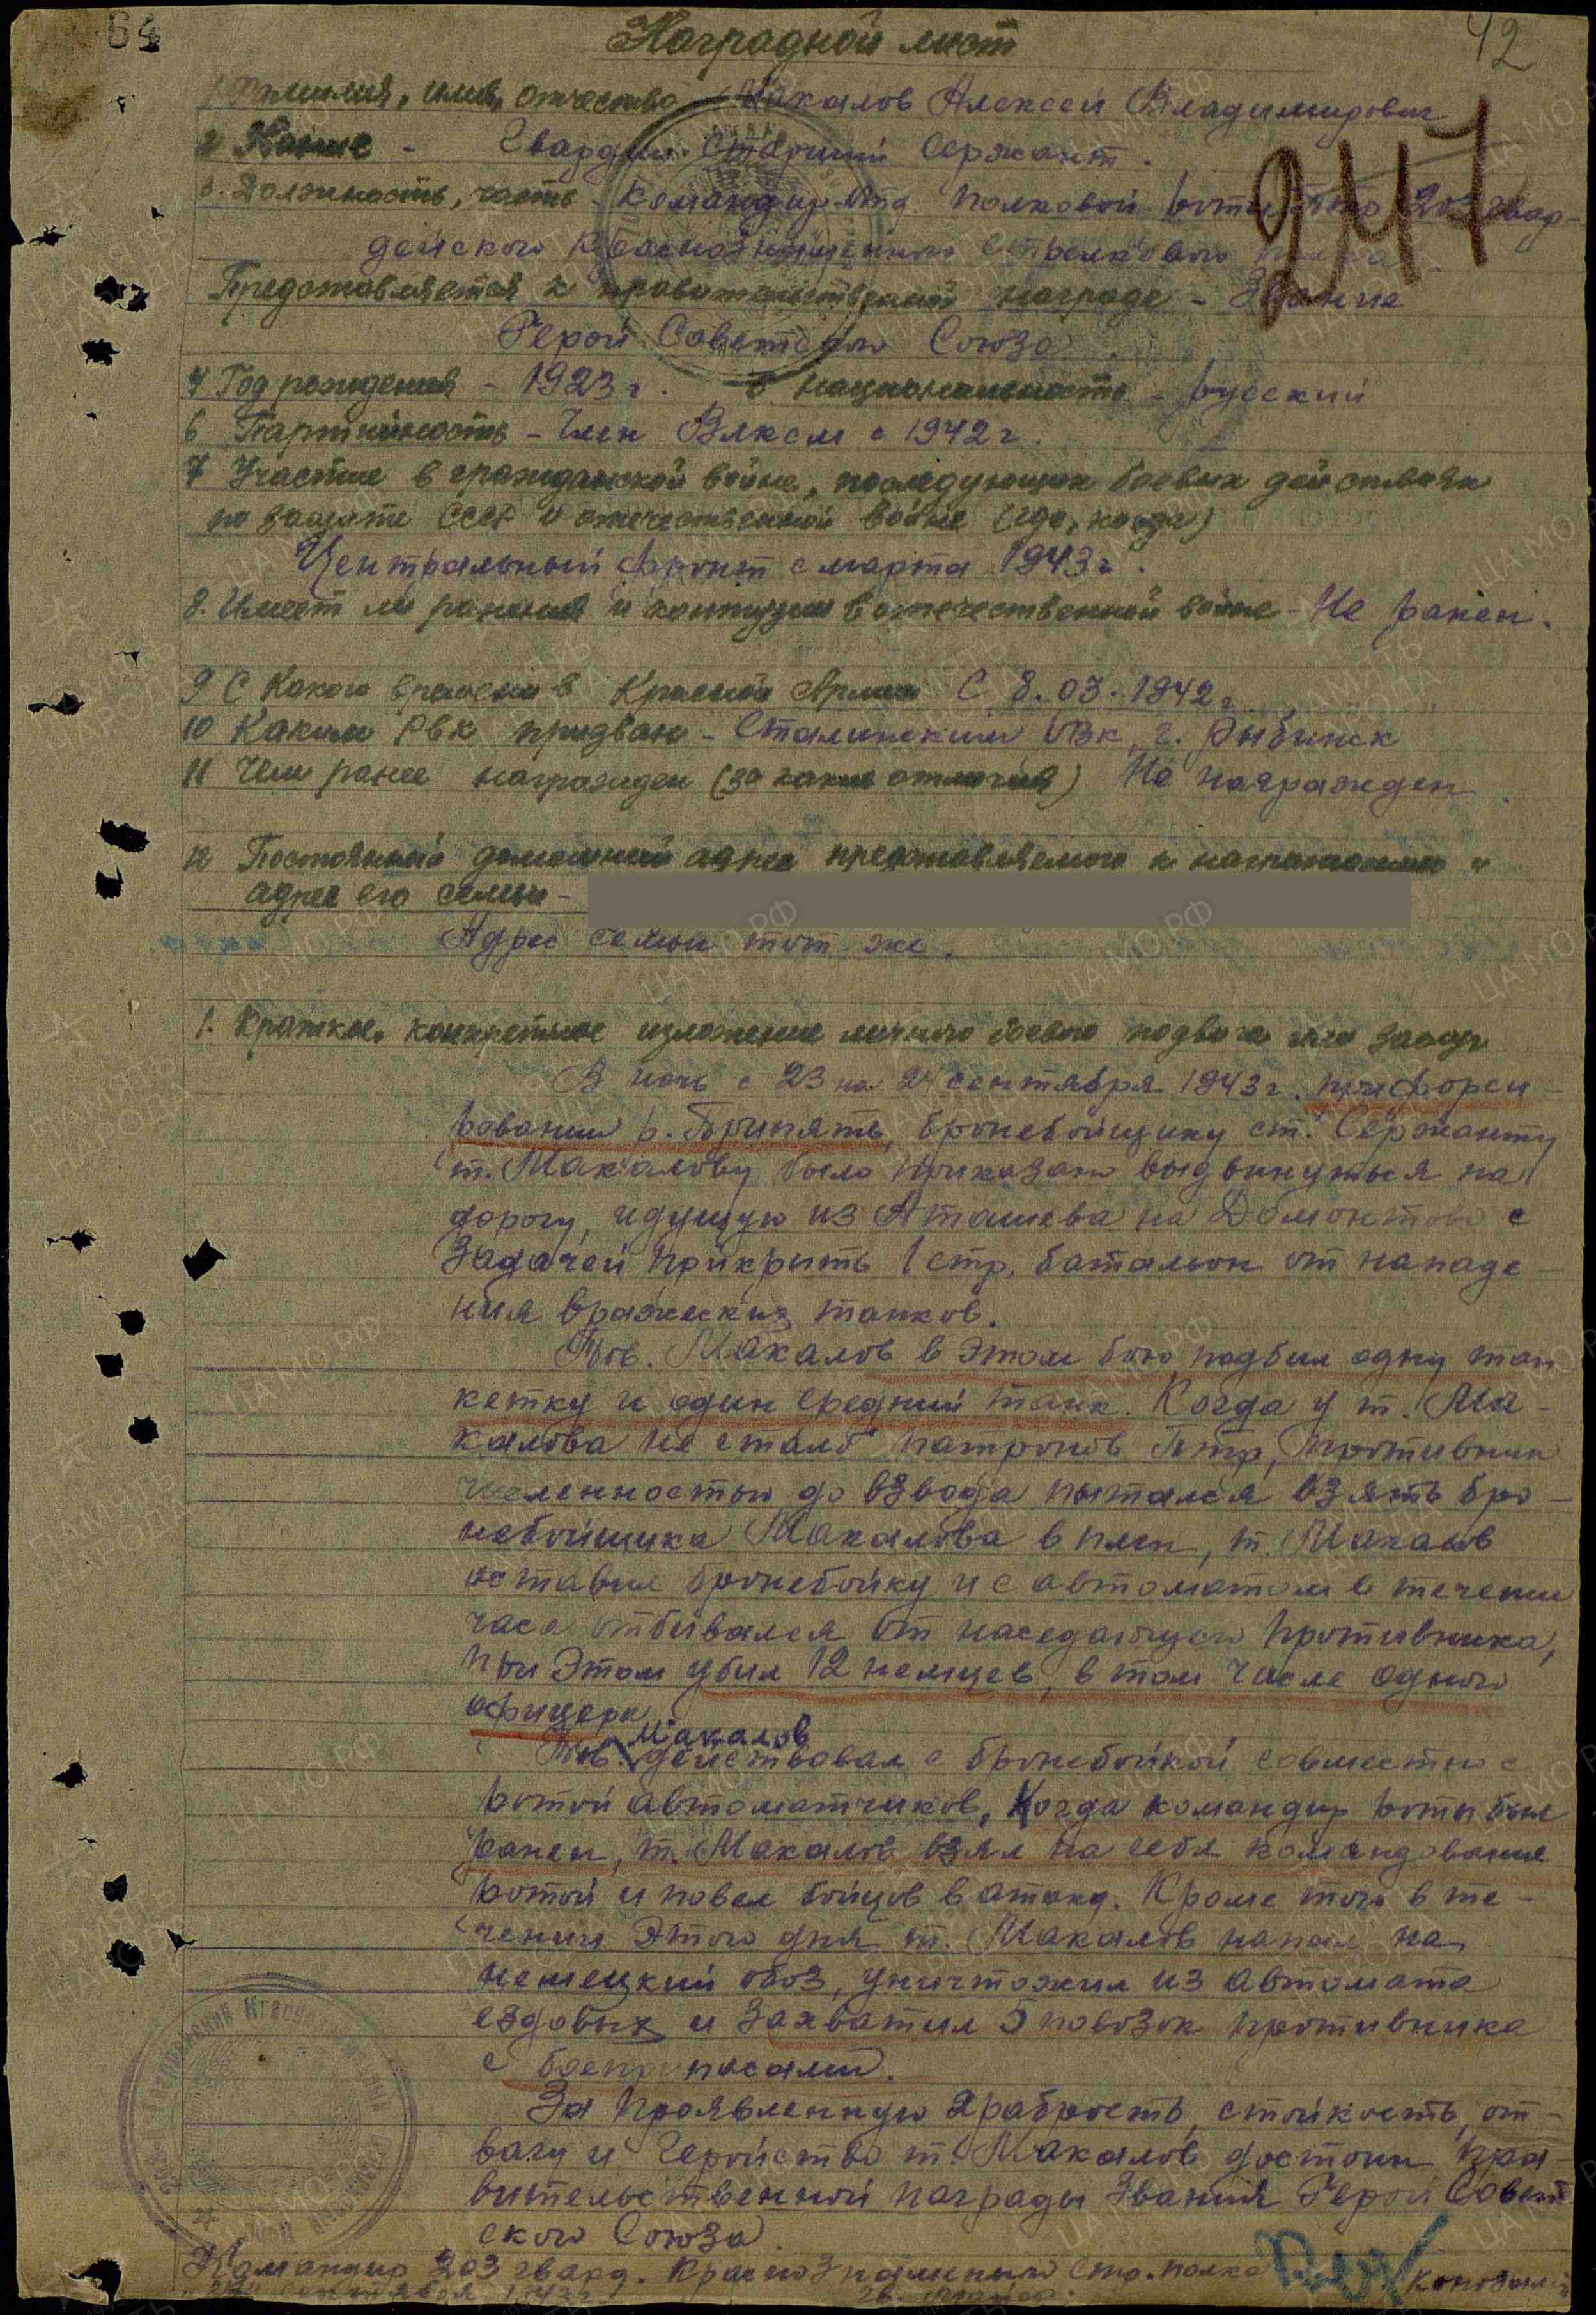 64
42
Наградной лист
1 Фамилия, имя, отчество Макалов Алексей Владимирович
2 Звание - Гвардии Старший Сержант.
247
3. Должность, часть - Командир отд. полковой роты Птр 203 гвар-
дейского Краснознаменного Стрелкового полка
Представляется к правительственной награде - Звание
Герой Советского Союза.
4 Год рождения - 1923 г. 5 национальность - русский
6 Партийность - Член Влксм с 1942 г.
7 Участие в гражданской войне, последующих боевых действиях
по защите СССР и отечественной войне (где, когда)
Центральный фронт с марта 1943 г.
8. Имеет ли ранения и контузии в отечественной войне - Не ранен.
9 С Какого времени в Красной Армии С 8.03.1942 г
10 Каким Рвк призван - Сталинским Рвк, г. Рыбинск
11 Чем ранее награжден (за какие отличия) Не награжден.
12 Постоянный домашний адрес представляемого к награждению и
адрес его семьи -
Адрес семьи тот-же.
1. Краткое, конкретное изложение личного боевого подвига или заслуг
В ночь с 23 на 24 сентября 1943 г. при форси-
ровании р. Припять, бронебойщику ст. Сержанту
т. Макалову было приказано выдвинуться на
дорогу, идущую из Аташева на Домонтово с
задачей прикрыть 1 стр. батальон от нападе-
ния вражеских танков.
Тов. Макалов в этом бою подбил одну тан
кетку и один средний танк. Когда у т. Ма-
калова не стало патронов Птр, противник
численностью до взвода пытался взять бро-
небойщика Макалова в плен, т. Макалов
оставил бронебойку и с автоматом в течении
часа отбивался от наседающего противника,
при этом убил 12 немцев, в том числе одного
офицера
Тов. Макалов действовал с бронебойкой совместно с
ротой автоматчиков, Когда командир роты был
ранен, т. Макалов взял на себя командование
ротой и повел бойцов в атаку. Кроме того в те-
чении этого дня т. Макалов напал на
немецкий обоз, уничтожил из автомата
ездовых и захватил 5 повозок противника
с боеприпасами.
За проявленную храбрость, стойкость, от-
вагу и геройство т. Макалов достоин пра-
вительственной награды Звания Герой Совет
ского Союза.
Командир 203 гвард. Краснознаменного Стр. полка